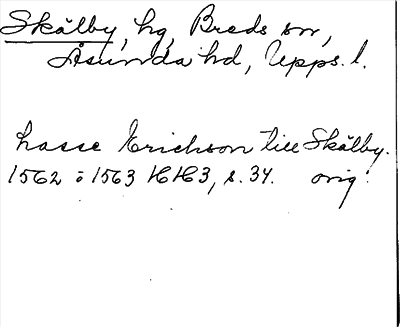 Skålby, hg, Breds sn,
Åsunda hd, Upps. l.
Lasse Erichson till Skålby.
1562 ö 1563 HH3, s. 34. orig.